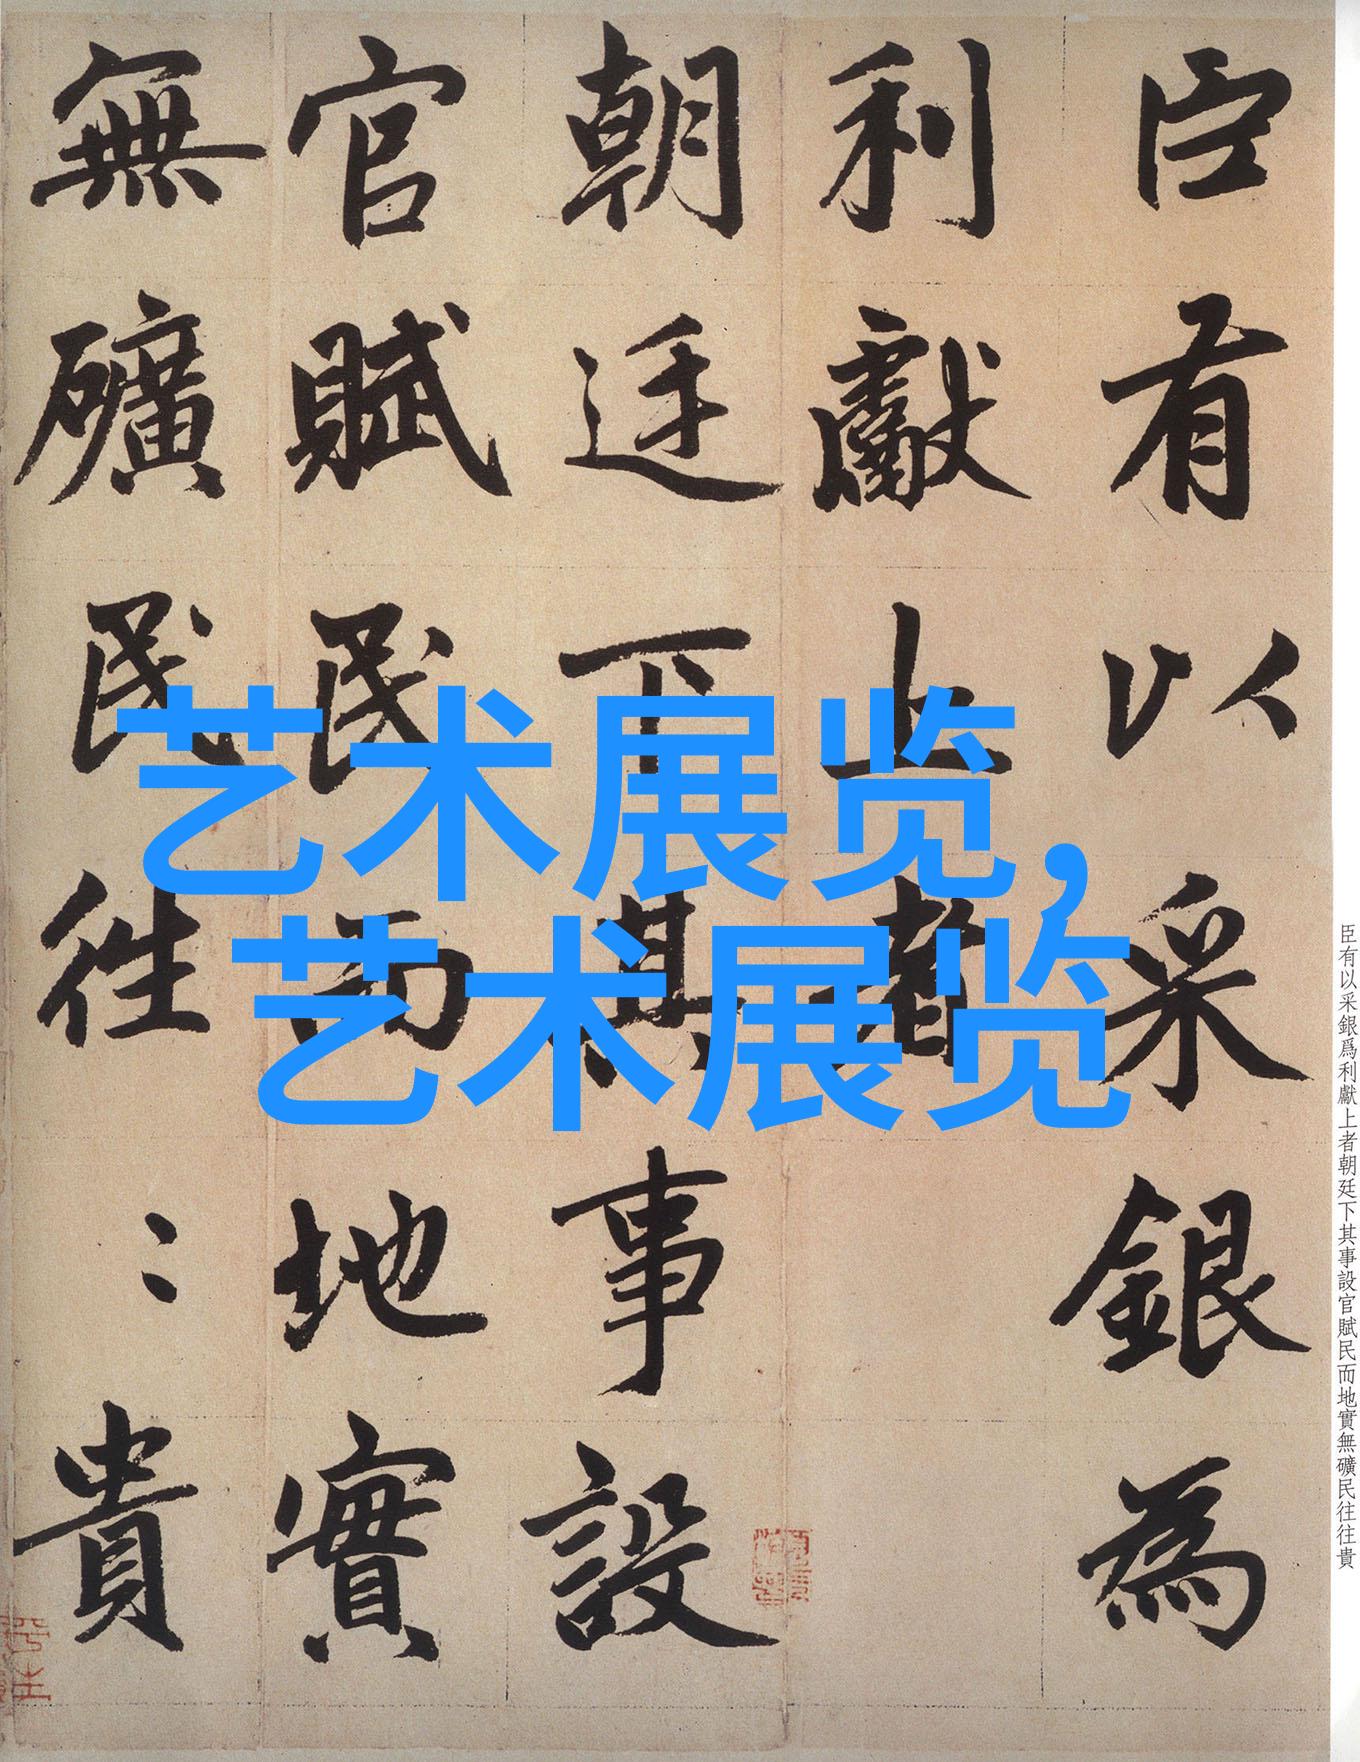 臣有以采銀為
利獻上者
朝廷下其事設
官賦民而地實
無礦民往〻貴
艺术展览，
艺术展览
臣有以采銀爲利獻上者朝廷下其事設官賦民而地實無礦民往往貴